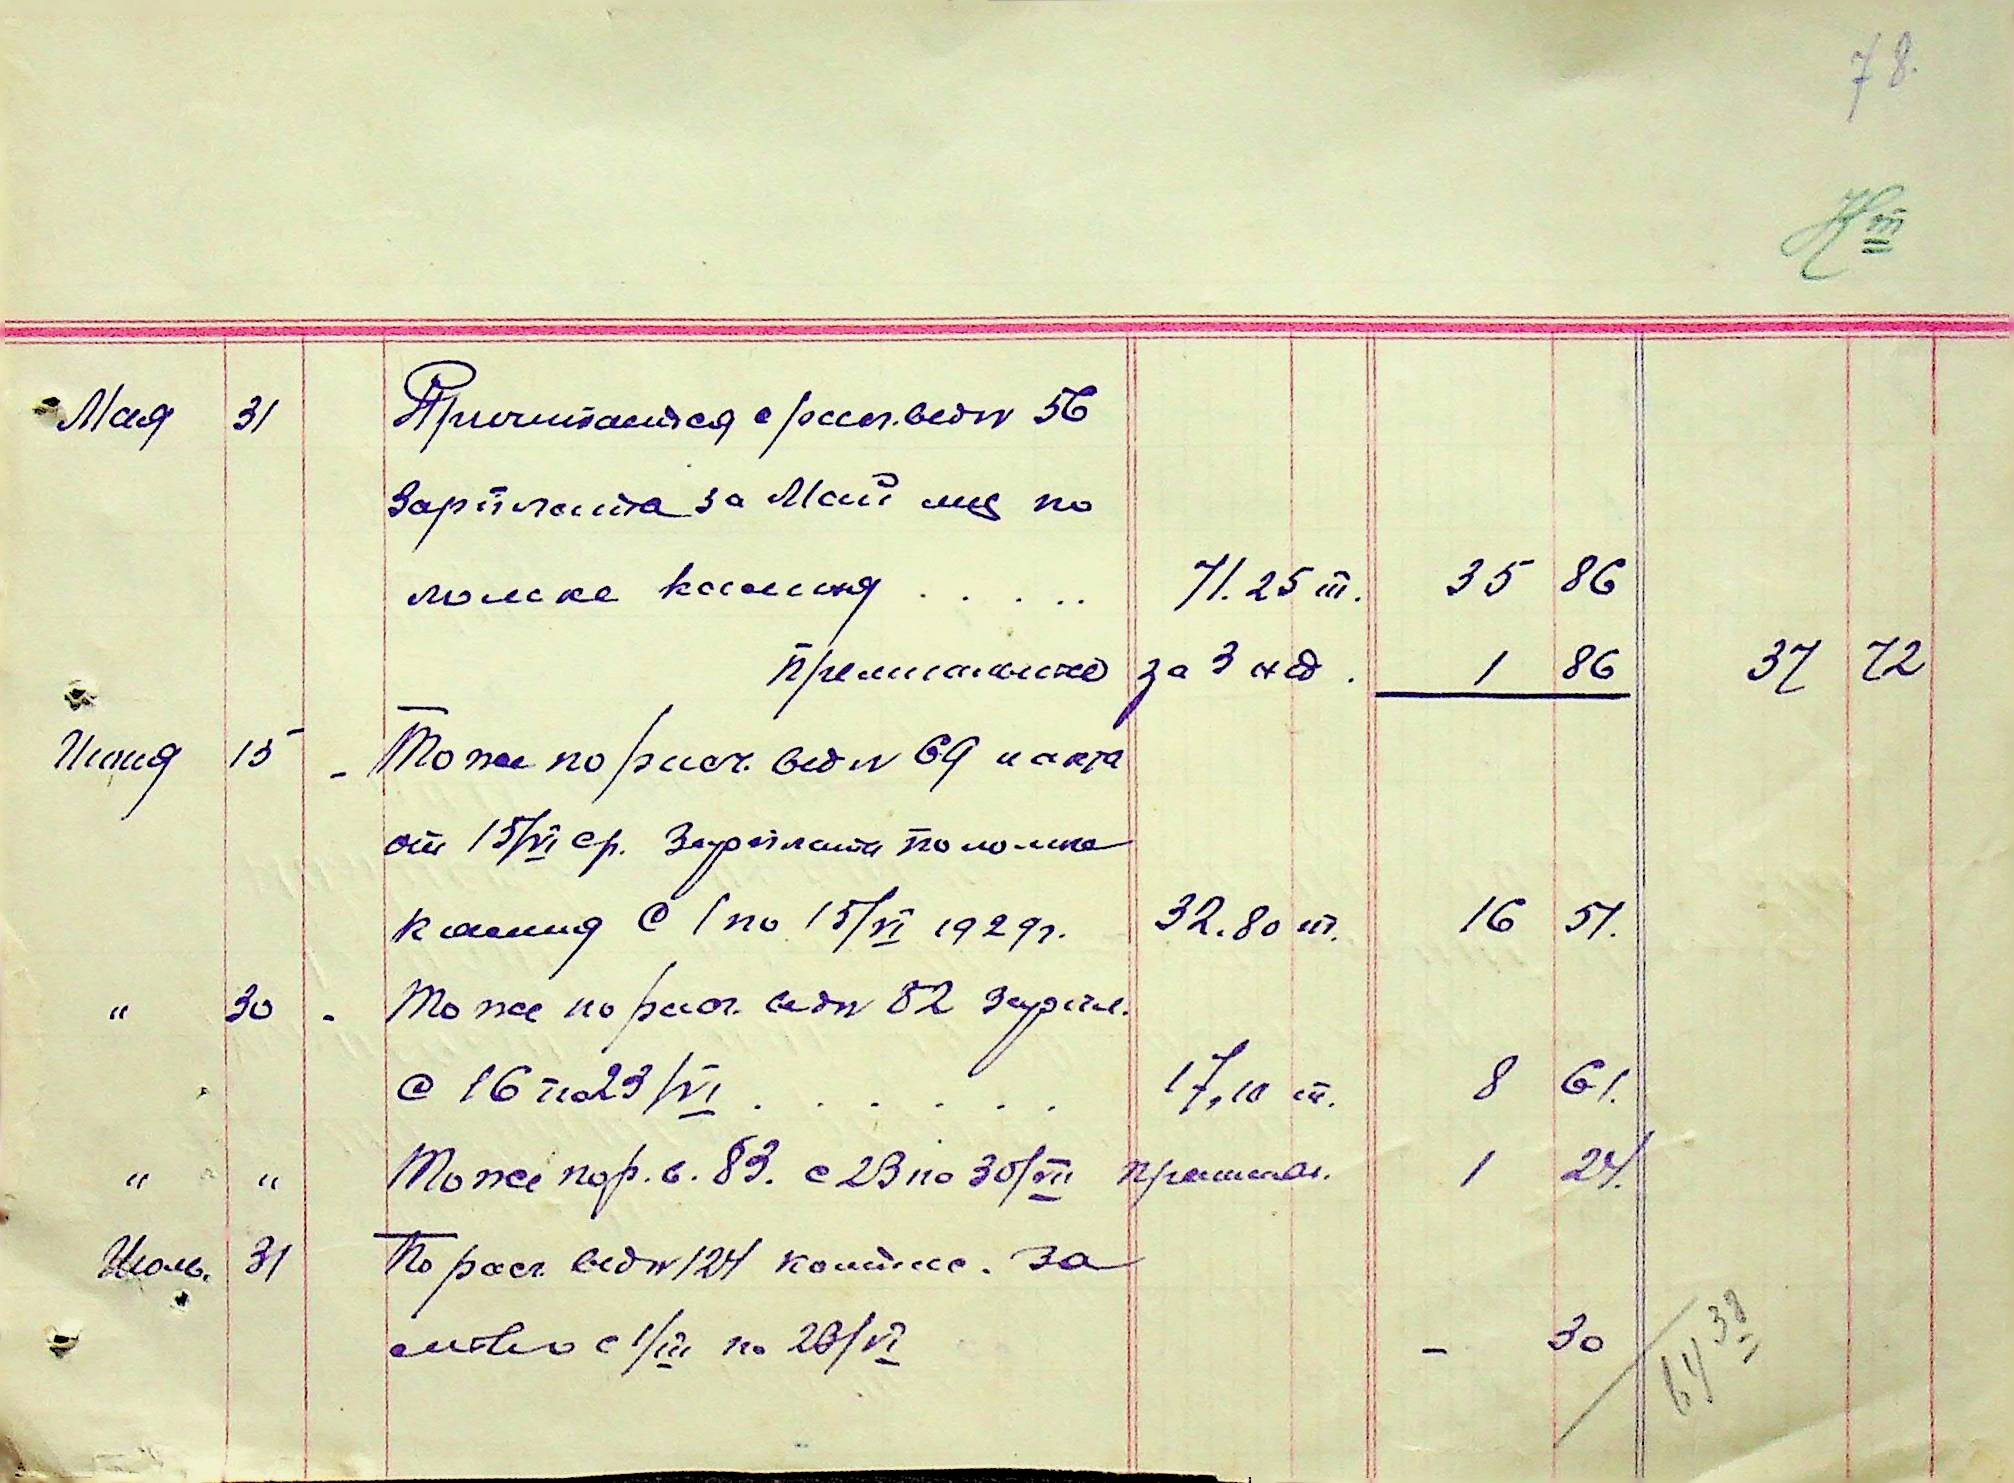 78.
Мая 31 Причитается с расч. вед № 56
Зарплата за Май м-ц по
ломке камня . . . . . 71.25 т. 35 86
премиальные за 3 нед. 1 86 37 72
Июня 15 - То же по расч. вед № 69 и акта
от 15/VI ср. Зарплата по ломке
камня с 1 по 15/VI 1929 г. 32.80 т. 16 51.
" 30 - То же по расч. вед № 82 зарпл.
с 16 по 23/VI . . . . . . 17,10 т. 8 61.
" " То же по р. в. 83. с 23 по 30/VII премиал. 1 24.
Июль. 31 По расч. вед № 124 компенс. за
с 1/III по 23/VI - 30
64 38